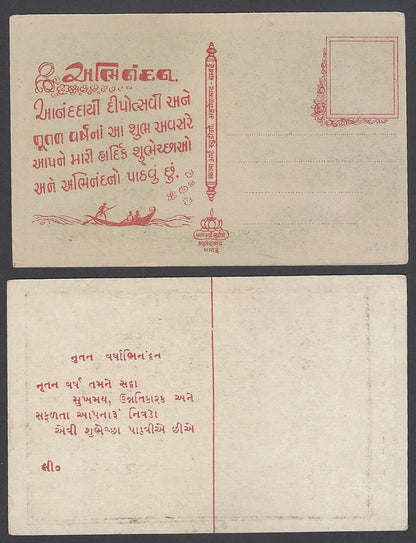 અભિનંદન.
આનંદદાયી દીપોત્સવી અને
નૂતન વર્ષનાં આ શુભ અવસરે
આપને મારી હાર્દિક શુભેચ્છાઓ
અને અભિનંદનો પાઠવું છું.
નુતન વર્ષાભિનંદન
નૂતન વર્ષ તમને સદા
સુખમય, ઉન્નતિકારક અને
સફળતા આપનારૂં નિવડો
એવી શુભેચ્છા પાઠવીએ છીએ
લી૦